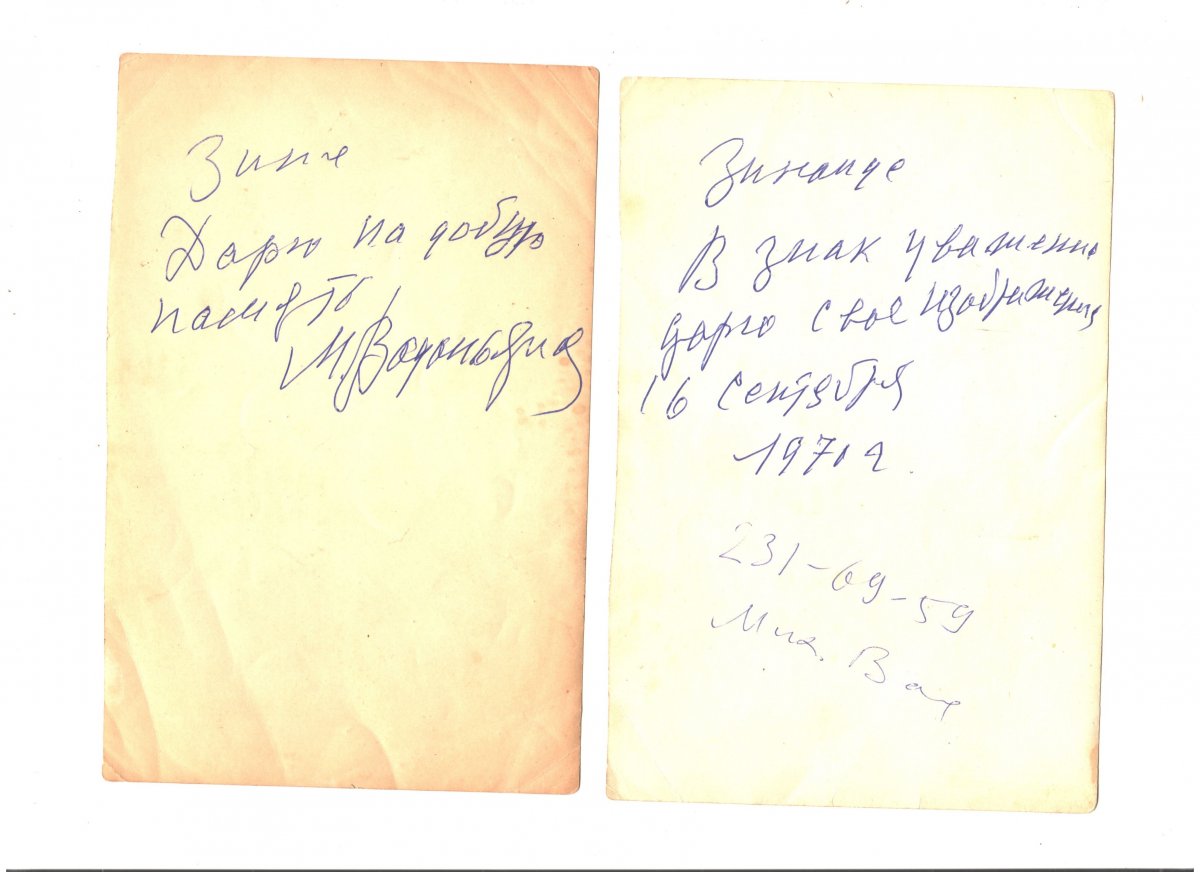 Зине
Дарю на добрую
память
М. Водопьянов
Зинаиде
В знак уважения
дарю свое изображение
16 сентября
1970 г.
231-69-59
Мих. Вас